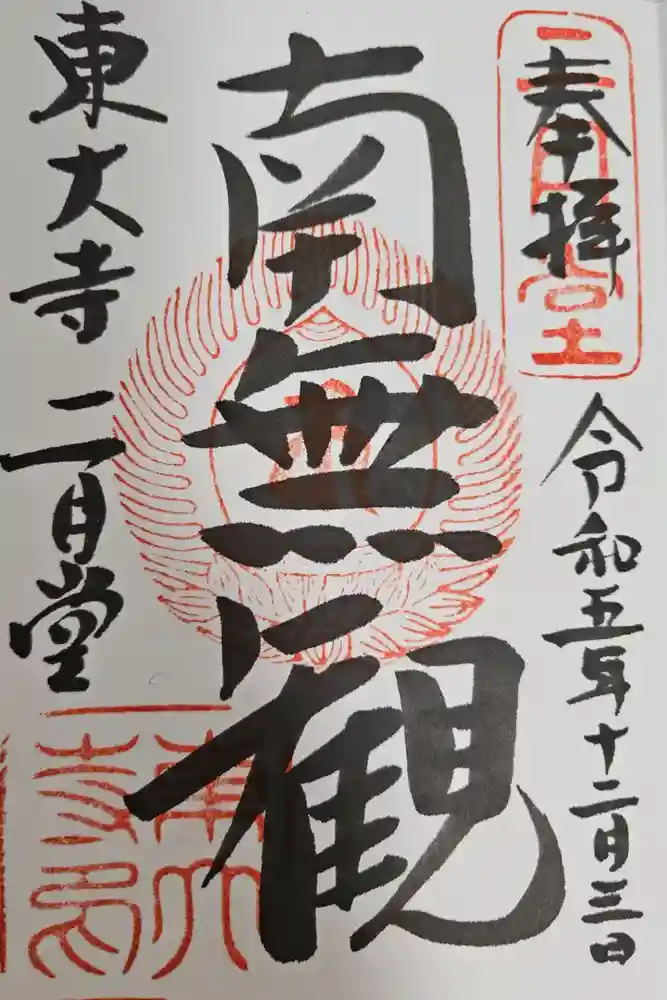 奉拝
二月堂
令和五年十二月三日
南無観
東大寺 二月堂